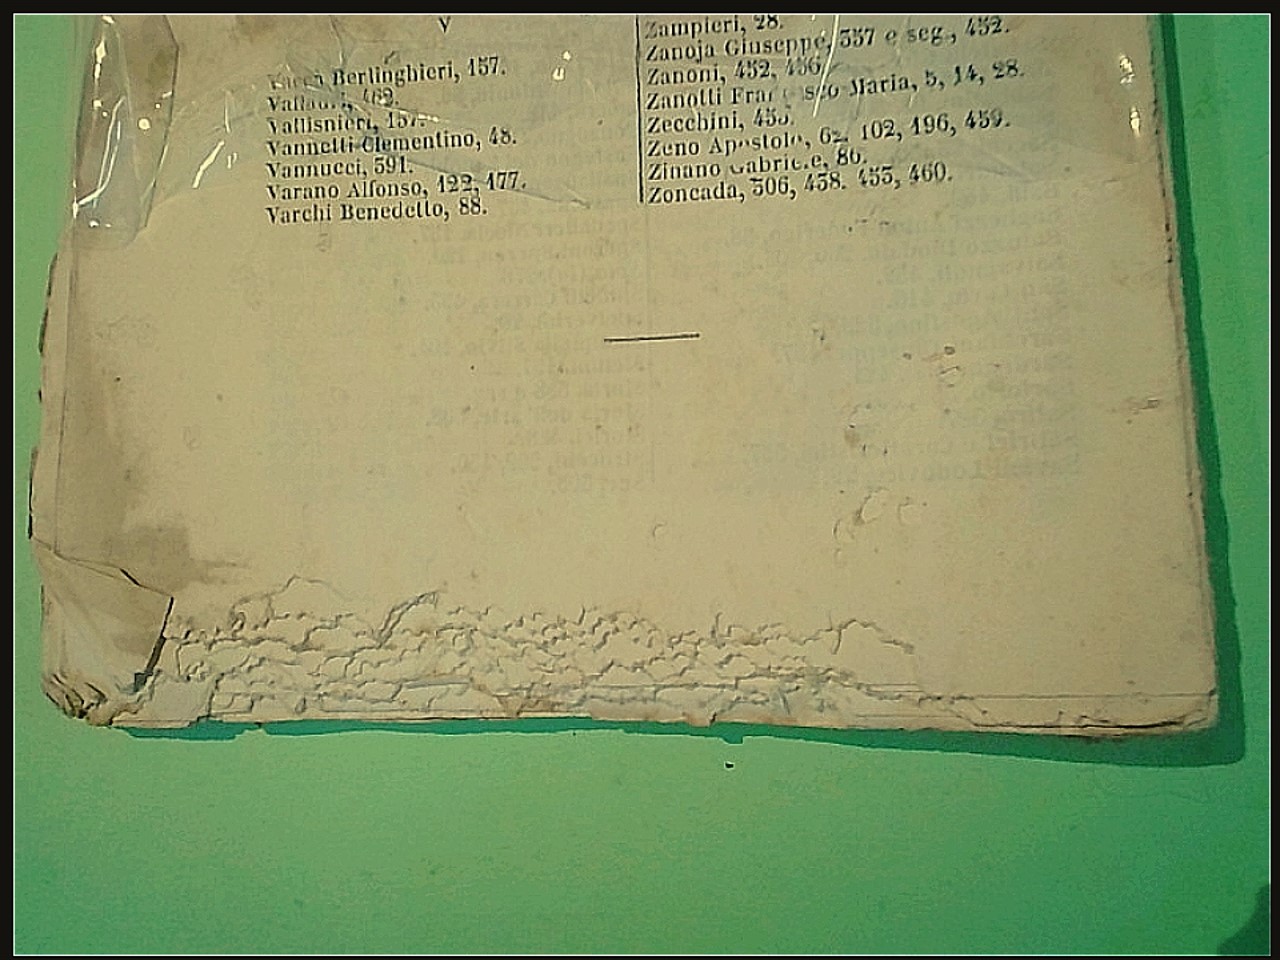 V
Vacca Berlinghieri, 157.
Vallauri, 462.
Vallisnieri, 157.
Vannetti Clementino, 48.
Vannucci, 391.
Varano Alfonso, 122, 177.
Varchi Benedetto, 88.
Zampieri, 28.
Zanoja Giuseppe, 357 e seg., 452.
Zanoni, 452, 456.
Zanotti Francesco Maria, 5, 14, 28.
Zecchini, 455.
Zeno Apostolo, 62, 102, 196, 459.
Zinano Gabriele, 86.
Zoncada, 306, 438. 453, 460.